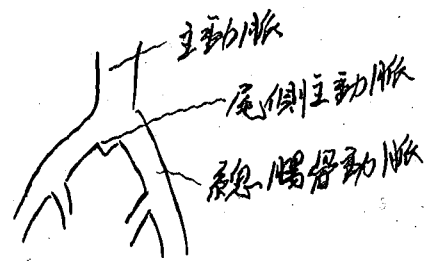 主動脈
尾側主動脈
総腸骨動脈